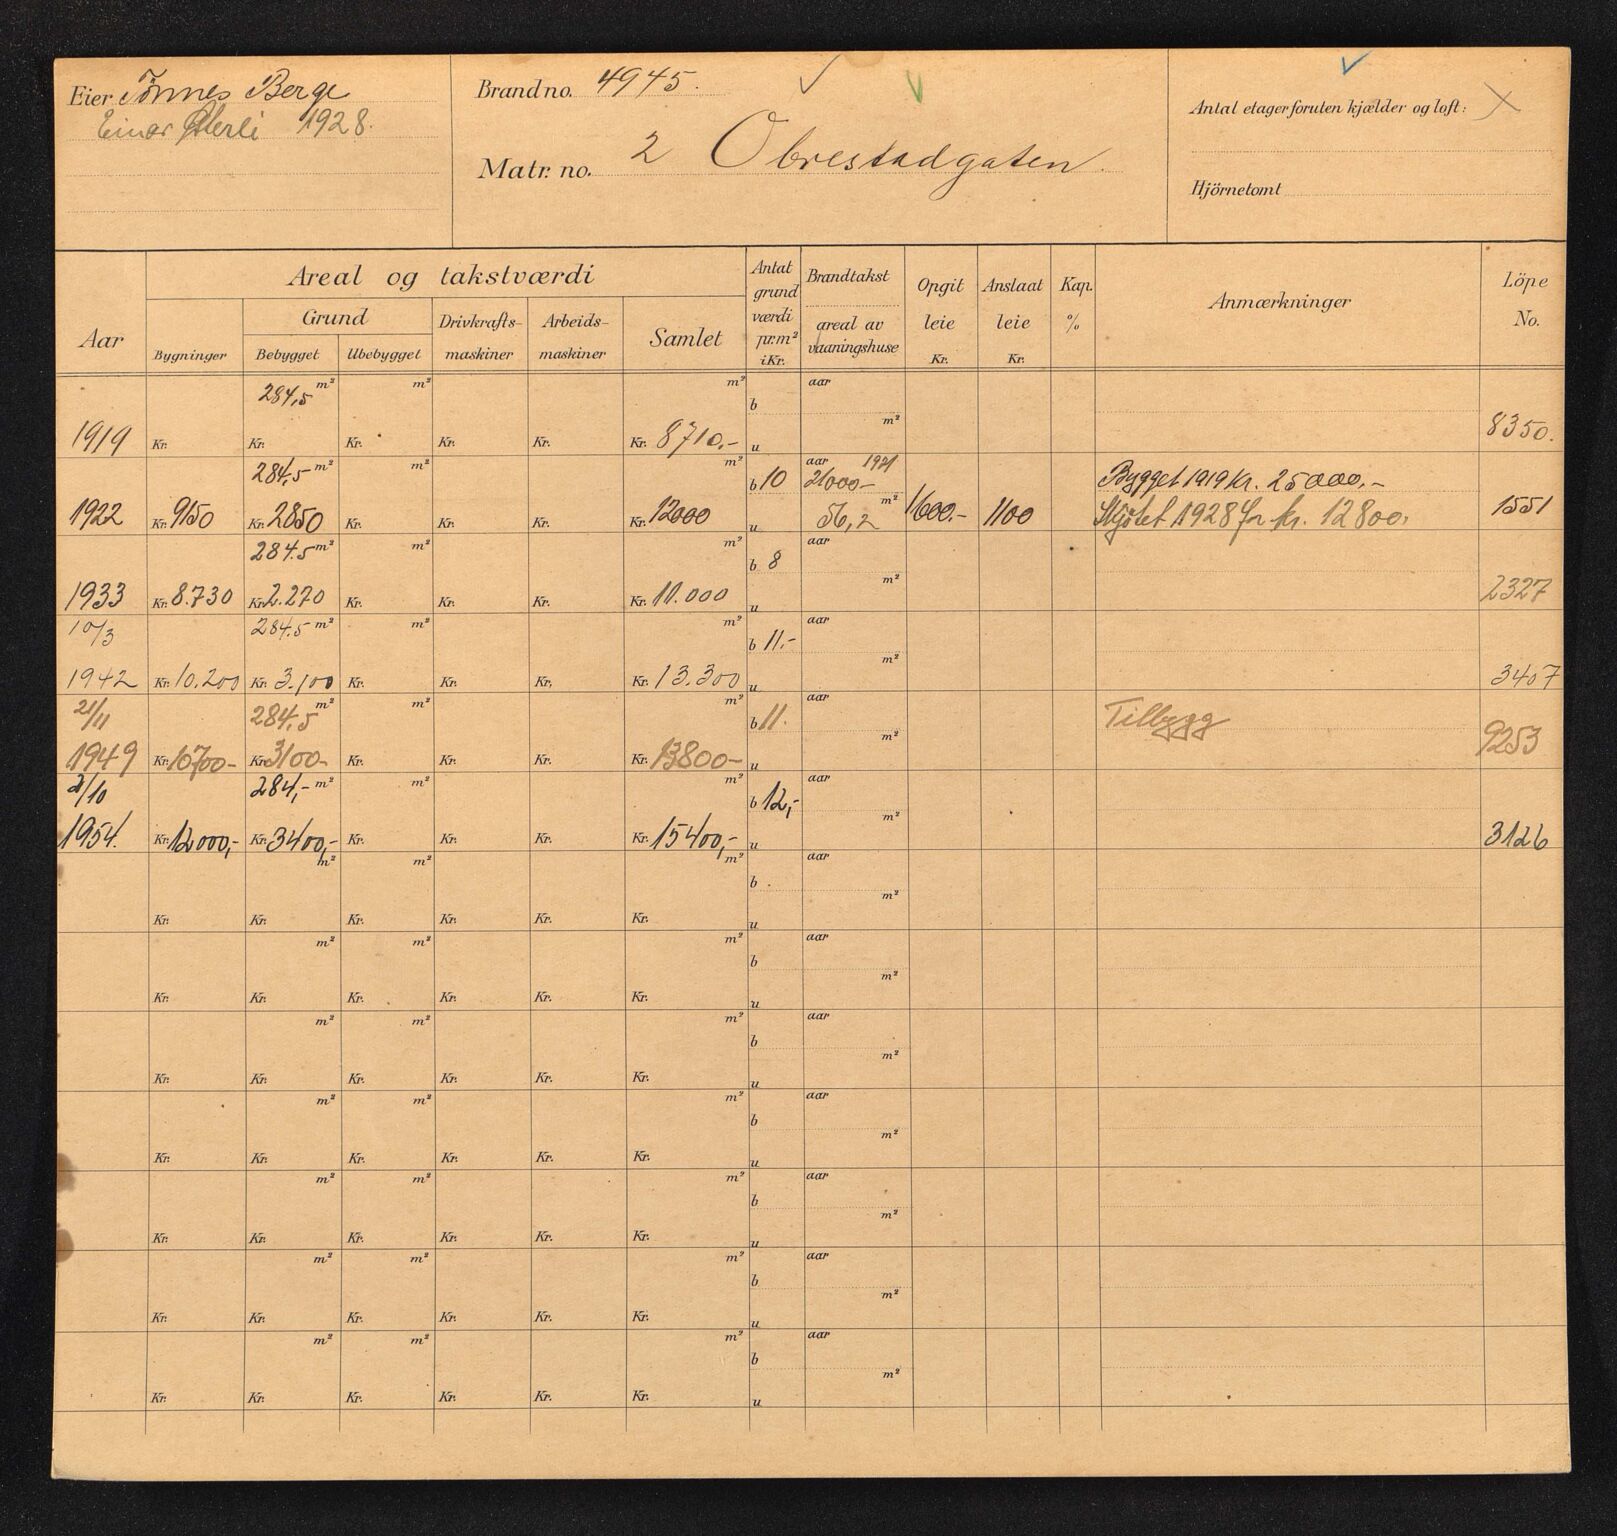 Eier Tönnes Berge
Einar Østerli 1928.
Brand no. 4945.
Matr. no. 2 Obrestadgaten.
Antal etager foruten kjælder og loft:
Hjörnetomt
Aar
Areal og takstværdi
Bygninger
Grund
Bebygget Ubebygget
Drivkrafts-
maskiner
Arbeids-
maskiner
Samlet
Antat
grund
værdi
pr. m²
i Kr.
Brandtakst
areal av
vaaningshuse
Opgit
leie
Kr.
Anslaat
leie
Kr.
Kap.
%
Anmærkninger
Löpe
No.
284,5 m² m² m² b aar
1919 Kr. Kr. Kr. Kr. Kr. Kr. 8710,- u m² 8350.
284,5 m² m² m² b 10 aar 1921 21000- Bygget 1919 kr. 25000,-
1922 Kr. 9150 Kr. 2850 Kr. Kr. Kr. Kr. 12000 u 56,2 m² 1600.- 1100 Skjötet 1928 for kr. 12800. 1551
284.5 m² m² m² b 8 aar
1933 Kr. 8.730 Kr. 2.270 Kr. Kr. Kr. Kr. 11.000 u m² 2327
10/3 284.5 m² m² m² b 11.- aar
1942 Kr. 10.200 Kr. 3.100 Kr. Kr. Kr. Kr. 13.300 u m² 3407
21/11 284,5 m² m² m² b 11. aar Tilbygg
1949 Kr. 10700- Kr. 3100- Kr. Kr. Kr. Kr. 13800- u m² 9253
2/10 284,- m² m² m² b 12,- aar
1954. Kr. 12000,- Kr. 3400,- Kr. Kr. Kr. Kr. 15400,- u m² 3126
m² m² m² b aar
Kr. Kr. Kr. Kr. Kr. Kr. u m²
m² m² m² b aar
Kr. Kr. Kr. Kr. Kr. Kr. u m²
m² m² m² b aar
Kr. Kr. Kr. Kr. Kr. Kr. u m²
m² m² m² b aar
Kr. Kr. Kr. Kr. Kr. Kr. u m²
m² m² m² b aar
Kr. Kr. Kr. Kr. Kr. Kr. u m²
m² m² m² b aar
Kr. Kr. Kr. Kr. Kr. Kr. u m²
m² m² m² b aar
Kr. Kr. Kr. Kr. Kr. Kr. u m²